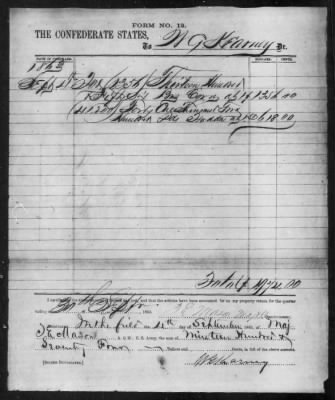 FORM NO. 12.
THE CONFEDERATE STATES,
To W G Kearney Dr.
DATE OF PURCHASE. DOLLARS. CENTS.
1863
Sept 11th For (1356) Thirteen Hundred
& Fifty Six Bus Corn at $1 1356 00
(41200) Forty One Thousand Two
Hundred Lbs Fodder at 1.50 618.00
Total $ 1974.00
I certify that the above account is correct and just, and that the articles have been accounted for on my property return for the quarter
ending 1863.
In the field on 11th day September 1863, of Maj
J E Mason A. Q. M. C. S. Army, the sum of Nineteen Hundred &
Seventy Four Dollars and Cents, in full of the above account.
[SIGNED DUPLICATES.] W G Kearney